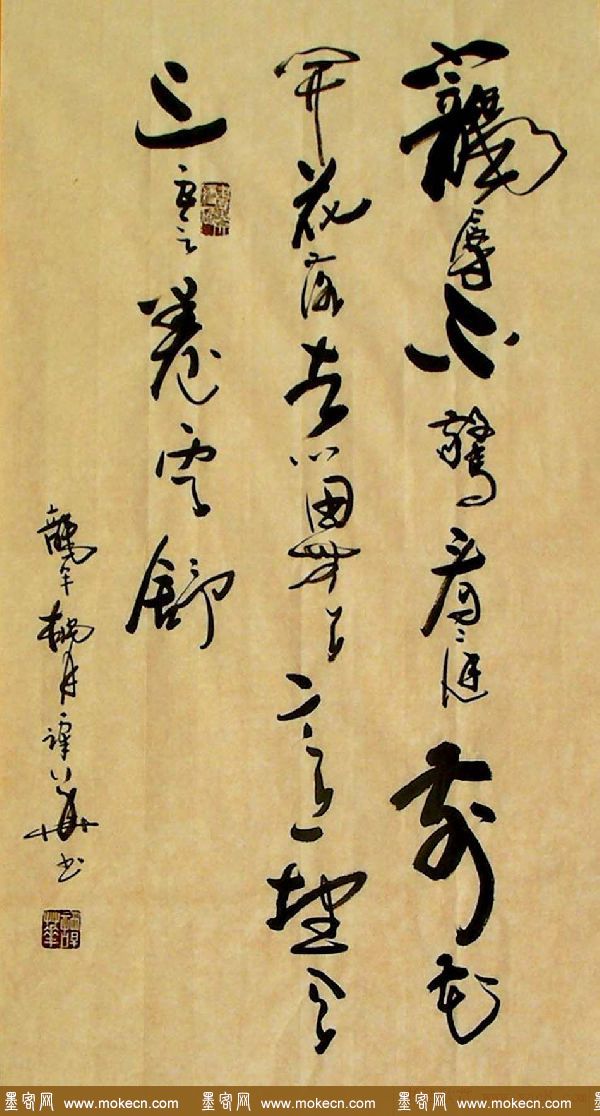 寵辱不驚看庭前花
開花落去留無意望天
上雲卷雲舒
龍年月譚華書
墨客网 www.mokecn.com 墨客网 www.mokecn.com 墨客网 www.mokecn.com 墨客网